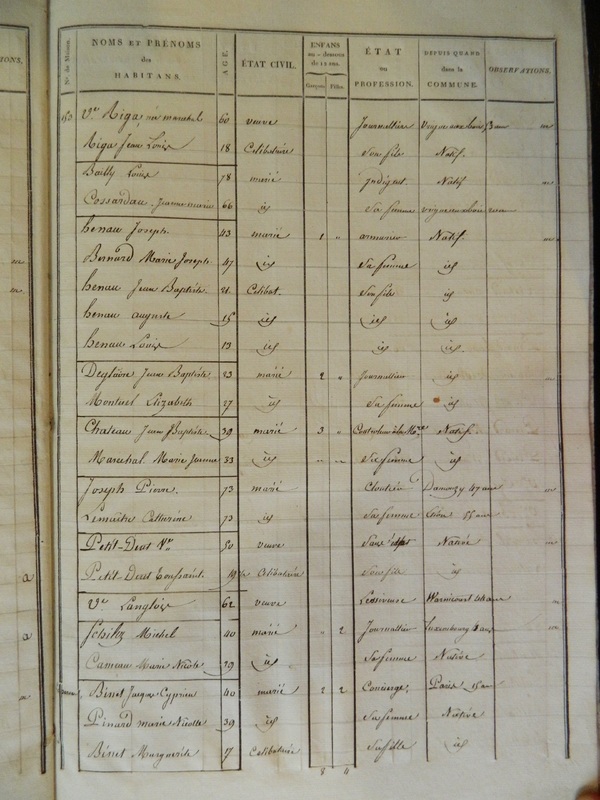 Nos de Maison. NOMS ET PRÉNOMS des HABITANS. AGE. ÉTAT CIVIL. ENFANS au-dessous de 12 ans. Garçons Filles. ÉTAT ou PROFESSION. DEPUIS QUAND dans la COMMUNE. OBSERVATIONS.
Ve Aiga née marechal 60 veuve Journallière
Aiga Jean Louis 18 Célibataire Son fils Natif.
Bailly Louis 78 marié Indigent Natif
Cossardau Jeanne marie 66 id Sa femme
henau Joseph 43 marié 1 " armurier Natif.
Bernard Marie Josephe 47 id Sa femme id
henau Jean Baptiste 21 Celibat. Son fils id
henau auguste 15 id id id
henau Louis 13 id id id.
Deglaire Jean Baptiste 23 marié 2 " Journallier id
Montuel Elizabeth 27 id Sa femme id
Chateau Jean Baptiste 39 marié 3 " Natif.
Marechal Marie Jeanne 33 id " " Sa femme id
Joseph Pierre. 73 marié Cloutier Damouzy 47 ans
Lemaitre Catherine 73 id Sa femme
Petit-Dent Ve 50 veuve Sans état Native
Petit-Dent Toussaint. Célibataire Son fils id
Ve Langlois 62 veuve Lessiveuse
Schiltz Michel 40 marié " 2 Journallier Luxembourg ans
Cameau Marie Nicole 29 id Sa femme Native
Binet Jacques Cyprien 40 marié 2 2 Concierge Paris 15 ans
Pinard marie Nicolle 39 id Sa femme Native
Binet Marguerite 17 Célibataire Sa fille id
8 4